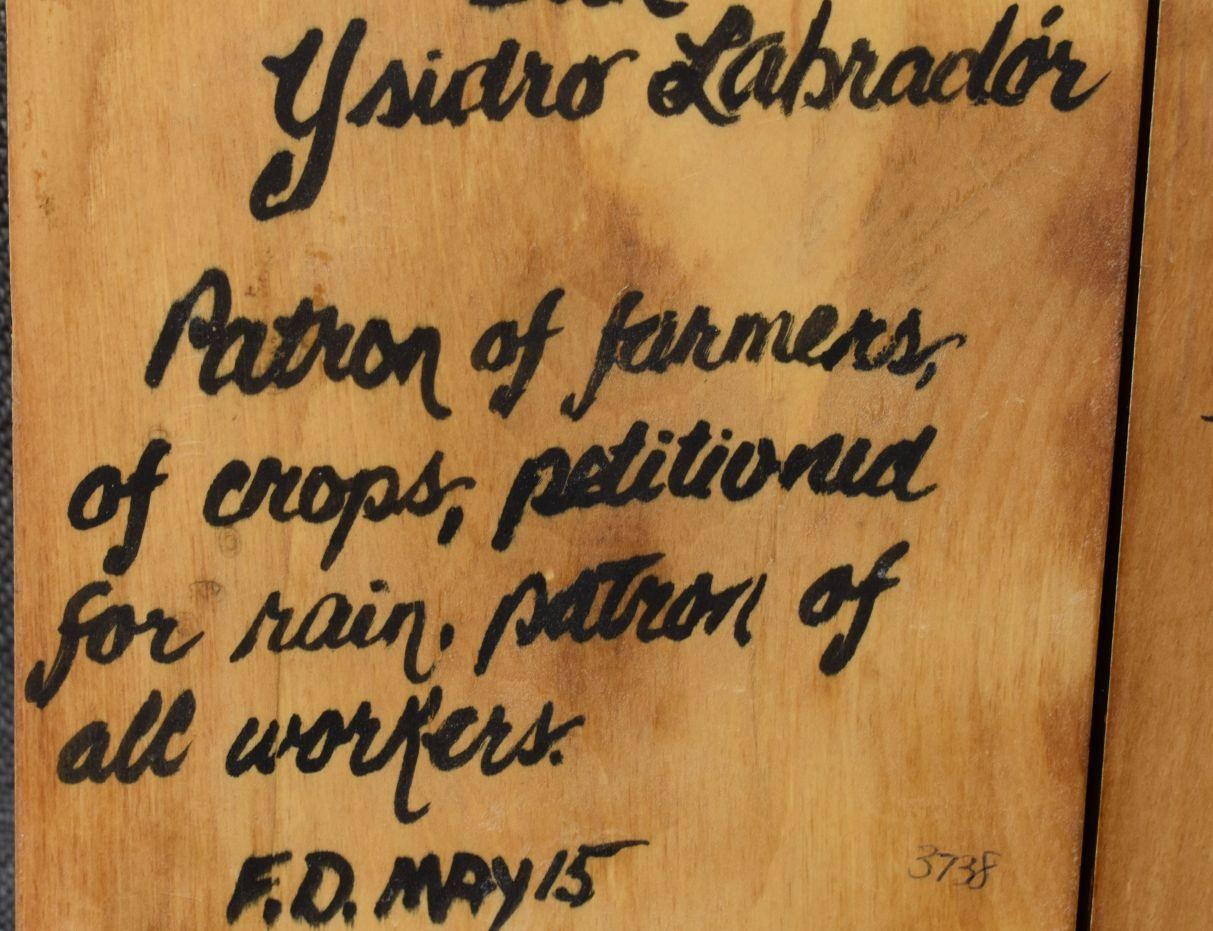 Ysidro Labradór
Patron of farmers,
of crops, petitioned
for rain. patron of
all workers.
F.D. MAY 15
3738